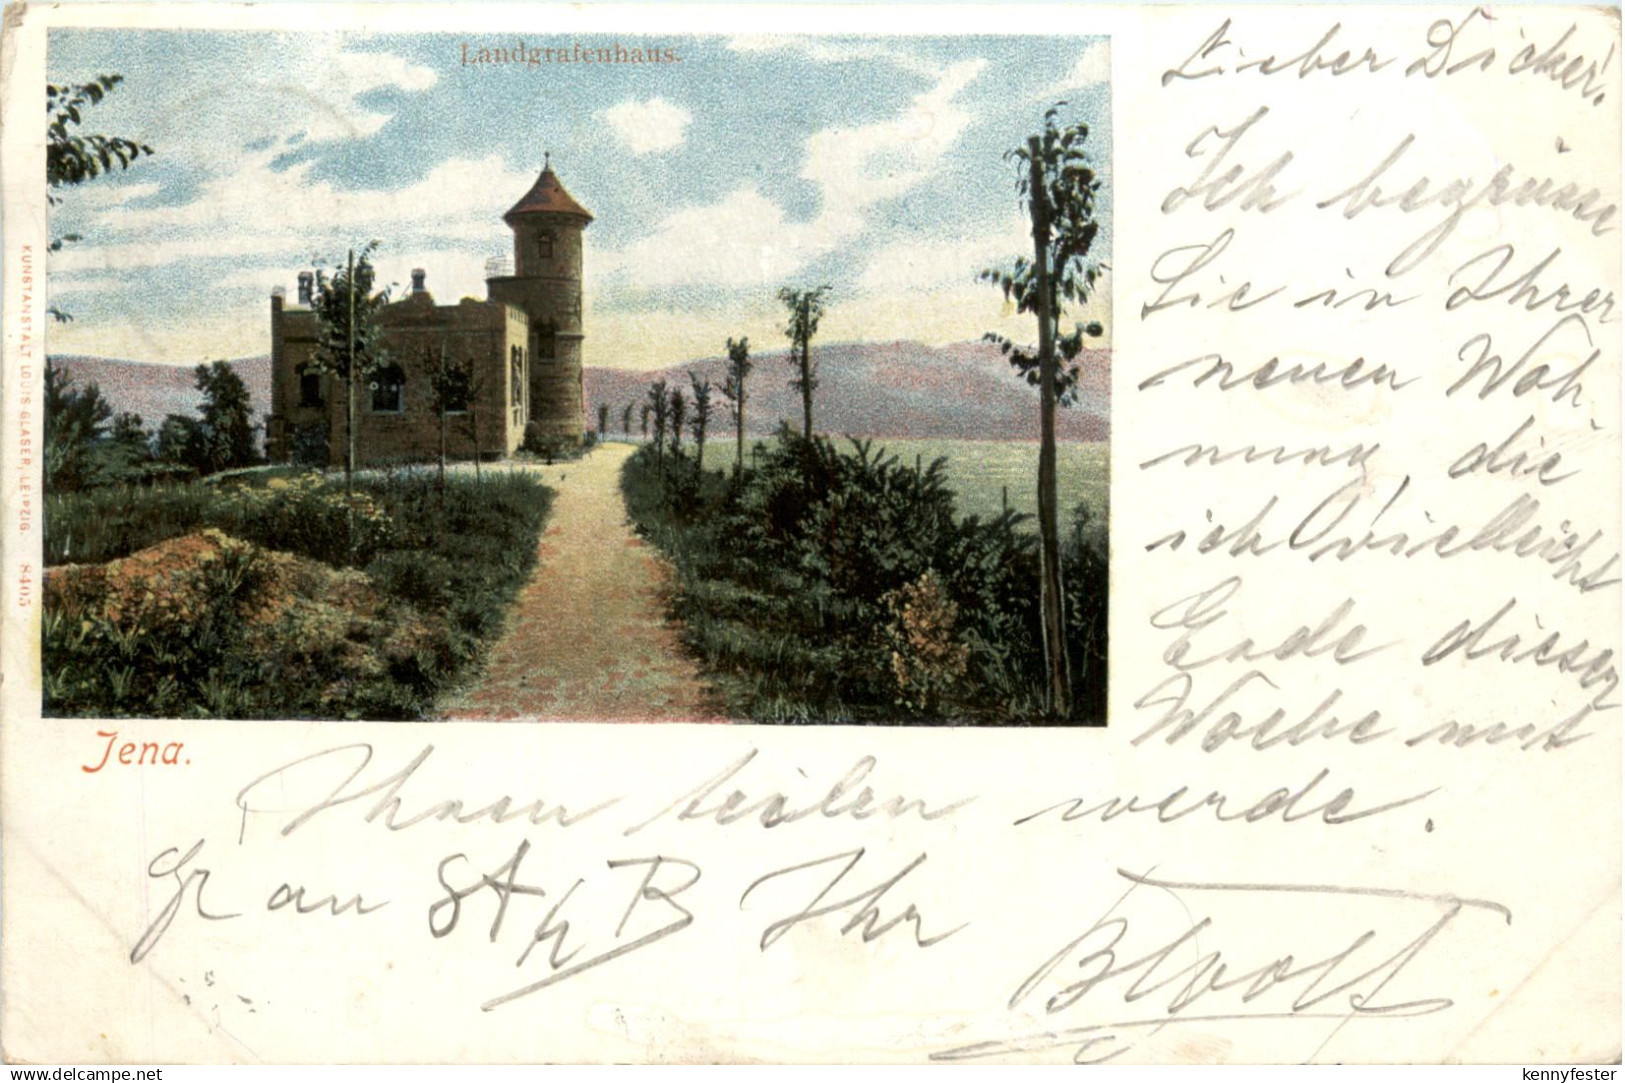 Landgrafenhaus.
KUNSTANSTALT LOUIS GLASER, LEIPZIG. 8405
Jena.
Lieber Dicker!
Ich begrüsse
Sie in Ihrer
neuen Woh-
nung, die
ich vielleicht
Ende dieser
Woche mit
Ihnen teilen werde.
Gr an Ihr
delcampe.net
kennyfester